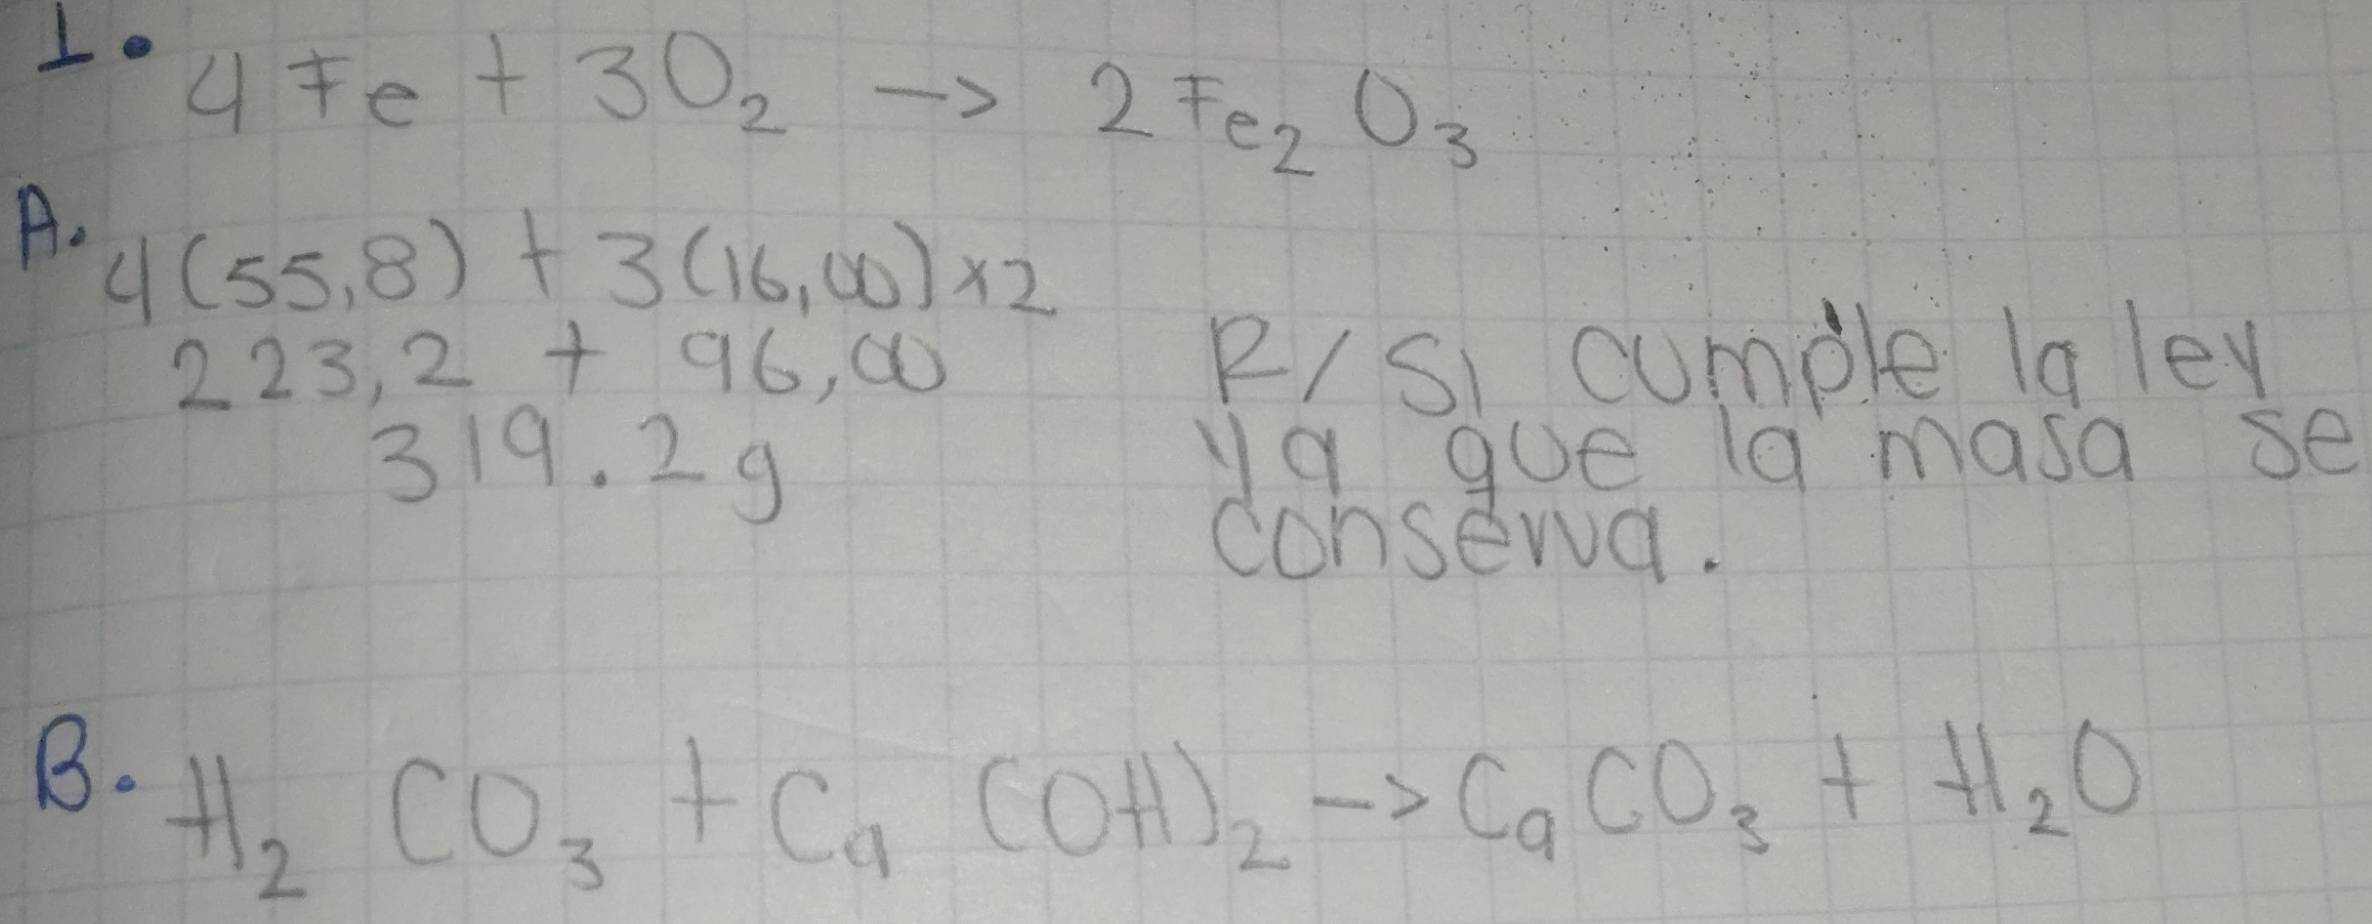 1. 4 Fe + 3O₂ -> 2 Fe₂ O₃
A. 4(55,8) + 3(16,00)x2
223,2 + 96,00
319.2g
R/ Si cumple la ley
ya que la masa se
conserva.
B. H₂ CO₃ + Ca (OH)₂ -> CaCO₃ + H₂O